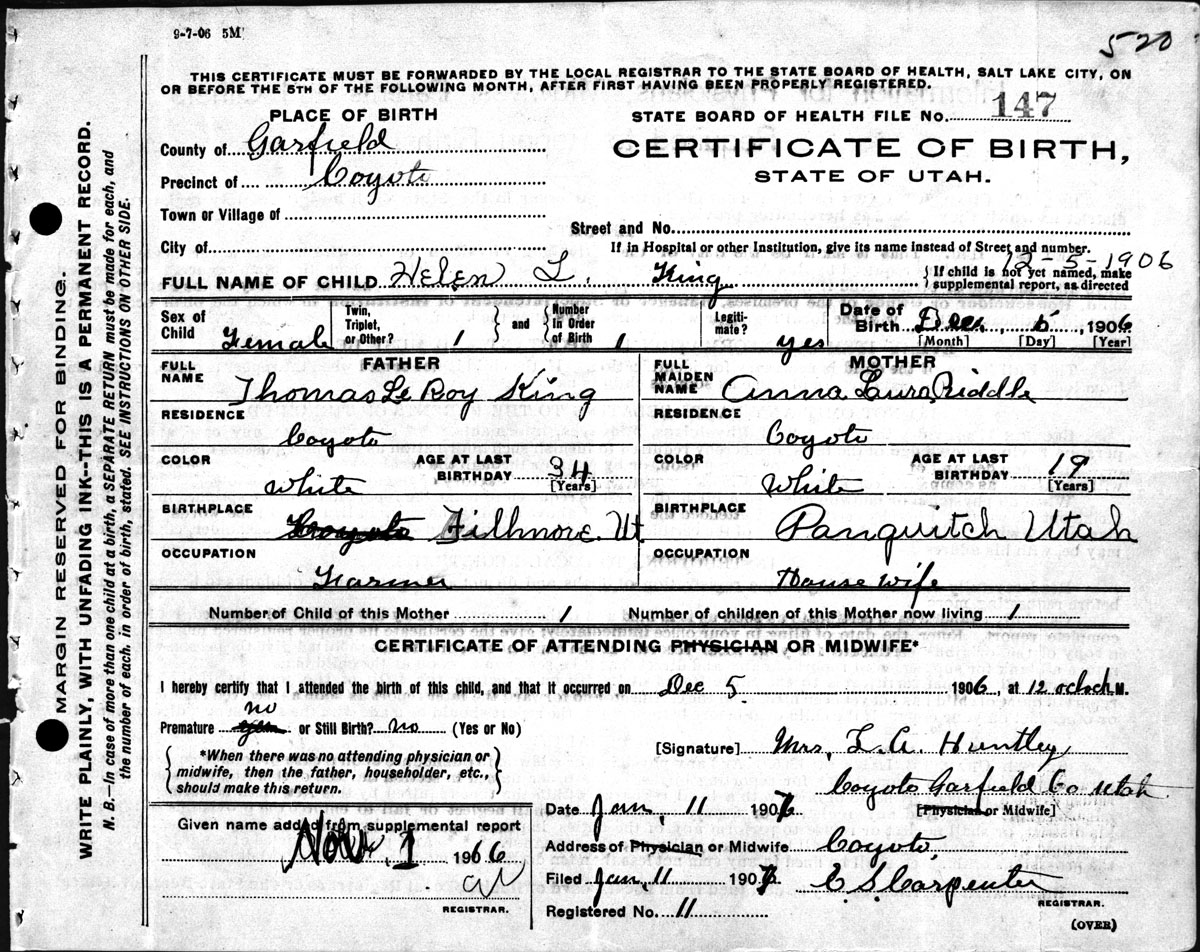 9-7-06 5M
520
THIS CERTIFICATE MUST BE FORWARDED BY THE LOCAL REGISTRAR TO THE STATE BOARD OF HEALTH, SALT LAKE CITY, ON
OR BEFORE THE 5TH OF THE FOLLOWING MONTH, AFTER FIRST HAVING BEEN PROPERLY REGISTERED.
PLACE OF BIRTH
STATE BOARD OF HEALTH FILE No. 147
County of Garfield
CERTIFICATE OF BIRTH,
Precinct of Coyoto
STATE OF UTAH.
Town or Village of
Street and No.
City of
If in Hospital or other Institution, give its name instead of Street and number.
12-5-1906
FULL NAME OF CHILD Helen L. King
{If child is not yet named, make
supplemental report, as directed
Sex of Child Female
Twin, Triplet, or Other? 1
and
Number in Order of Birth 1
Legiti-mate? yes
Date of Birth Dec, 5, 1906
[Month] [Day] [Year]
FATHER
FULL NAME Thomas Le Roy King
RESIDENCE
Coyoto
COLOR White
AGE AT LAST BIRTHDAY 34 [Years]
BIRTHPLACE Coyoto Fillmore. Ut.
OCCUPATION
Farmer
MOTHER
FULL MAIDEN NAME Anna Laura Riddle
RESIDENCE
Coyoto
COLOR White
AGE AT LAST BIRTHDAY 19 [Years]
BIRTHPLACE Panquitch Utah
OCCUPATION
House wife
Number of Child of this Mother 1
Number of children of this Mother now living 1
CERTIFICATE OF ATTENDING PHYSICIAN OR MIDWIFE*
I hereby certify that I attended the birth of this child, and that it occurred on Dec 5 1906, at 12 oclock M.
no
Premature yes or Still Birth? no (Yes or No)
*When there was no attending physician or
midwife, then the father, householder, etc.,
should make this return.
[Signature] Mrs, L. A. Huntley
Coyoto Garfield Co Utah
Date Jan, 11 1907
[Physician or Midwife]
Given name added from supplemental report
Nov. 1 1966
REGISTRAR.
Address of Physician or Midwife Coyoto,
Filed Jan. 11 1907 C S Carpenter
REGISTRAR.
Registered No. 11
(OVER)
MARGIN RESERVED FOR BINDING.
WRITE PLAINLY, WITH UNFADING INK--THIS IS A PERMANENT RECORD.
N. B.—In case of more than one child at a birth, a SEPARATE RETURN must be made for each, and
the number of each, in order of birth, stated. SEE INSTRUCTIONS ON OTHER SIDE.